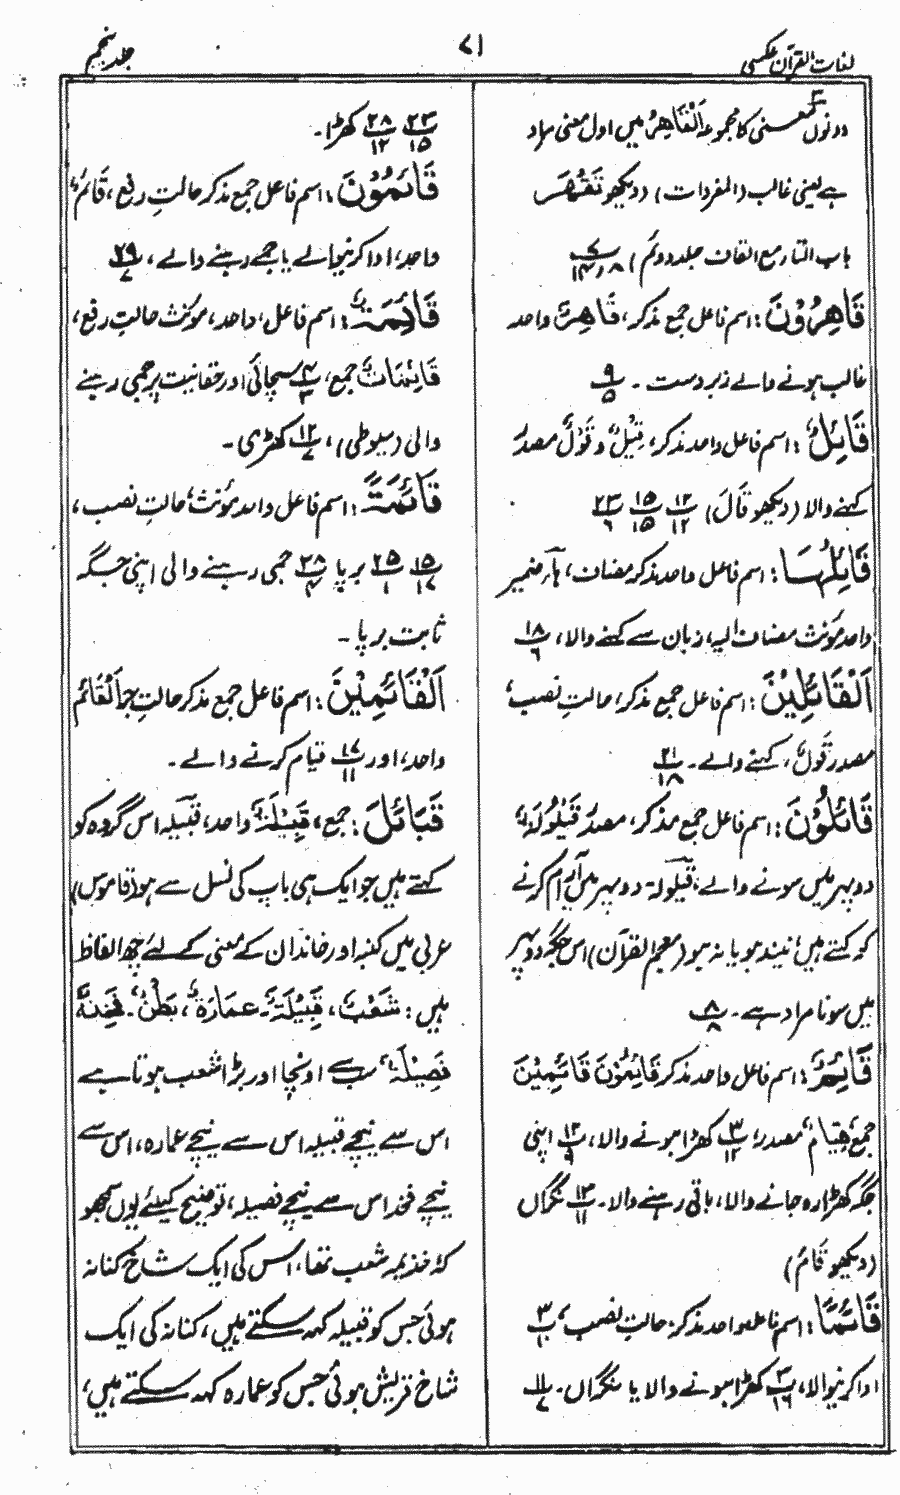 لغات القرآن عکسی
۷۱
جلد پنجم
دونوں معنی کا مجموعہ اَلْقَاهِرُ میں اول معنی مراد
ہے یعنی غالب (المفردات) (دیکھو تَقْهَرْ
باب التاء مع القاف جلد دوئم)
قَاهِرُوْنَ: اسم فاعل جمع مذکر، قَاهِرٌ واحد
غالب ہونے والے زبردست۔ ۹/۵
قَائِلٌ: اسم فاعل واحد مذکر، قِیْلٌ و قَوْلٌ مصدر
کہنے والا (دیکھو قَالَ) ۱۲/۱۲ ۱۵/۱۵ ۲۳/۶
قَائِلُهَا: اسم فاعل واحد مذکر مضاف، ہا ضمیر
واحد مؤنث مضاف الیہ، زبان سے کہنے والا، ۱۸/۶
اَلْقَائِلِیْنَ: اسم فاعل جمع مذکر، حالتِ نصب،
مصدر قَوْلٌ، کہنے والے۔ ۲۱/۱۸
قَائِلُوْنَ: اسم فاعل جمع مذکر، مصدر قَیْلُوْلَۃٌ،
دوپہر میں سونے والے، قیلولہ دوپہر میں آرام کرنے
کو کہتے ہیں نیند ہو یا نہ ہو (معجم القرآن) اس جگہ دوپہر
میں سونا مراد ہے۔ ۸/۸
قَائِمٌ: اسم فاعل واحد مذکر قَائِمُوْنَ قَائِمِیْنَ
جمع، قِیَامٌ، مصدر، ۳/۱۲ کھڑا ہونے والا، ۱۲/۹ اپنی
جگہ کھڑا رہ جانے والا، باقی رہنے والا۔ ۱۳/۱۱ نگراں
(دیکھو قَامَ)
قَائِمًا: اسم فاعل واحد مذکر، حالتِ نصب، ۳/۱۰
ادا کرنیوالا، ۳/۱۶ کھڑا ہونے والا یا نگراں۔ ۱۱/۷
۲۳/۱۵ ۲۸/۱۲ کھڑا۔
قَائِمُوْنَ: اسم فاعل جمع مذکر حالتِ رفع، قَائِمٌ
واحد، ادا کرنیوالے یا جمے رہنے والے، ۲۹/۷
قَائِمَۃٌ: اسم فاعل، واحد، مؤنث حالتِ رفع،
قَائِمَاتٌ جمع، ۴/۳ سچائی اور حقانیت پر جمی رہنے
والی (سیوطی)، ۱۲/۷ کھڑی۔
قَائِمَۃً: اسم فاعل واحد مؤنث، حالتِ نصب،
۱۵/۱۷ ۲۵/۱ برپا ۲۸/۴ جمی رہنے والی اپنی جگہ
ثابت برپا۔
اَلْقَائِمِیْنَ: اسم فاعل جمع مذکر حالتِ جر اَلْقَائِمُ
واحد، اور ۱۷/۱۱ قیام کرنے والے۔
قَبَائِلَ: جمع، قَبِیْلَۃٌ واحد، قبیلہ اس گروہ کو
کہتے ہیں جو ایک ہی باپ کی نسل سے ہو (قاموس)
عربی میں کنبہ اور خاندان کے معنی کے لئے چھ الفاظ
ہیں: شَعْبٌ، قَبِیْلَۃٌ۔ عمَارَۃٌ، بَطْنٌ۔ فَخِذٌ
فَصِیْلَۃٌ، سب سے اونچا اور بڑا شعب ہوتا ہے
اس سے نیچے قبیلہ اس سے نیچے عمارہ، اس سے
نیچے فخذ اس سے نیچے فصیلہ، توضیح کیلئے یوں سمجھو
کہ خذیمہ شعب تھا، اس کی ایک شاخ کنانہ
ہوئی جس کو قبیلہ کہہ سکتے ہیں، کنانہ کی ایک
شاخ قریش ہوئی جس کو عمارہ کہہ سکتے ہیں،